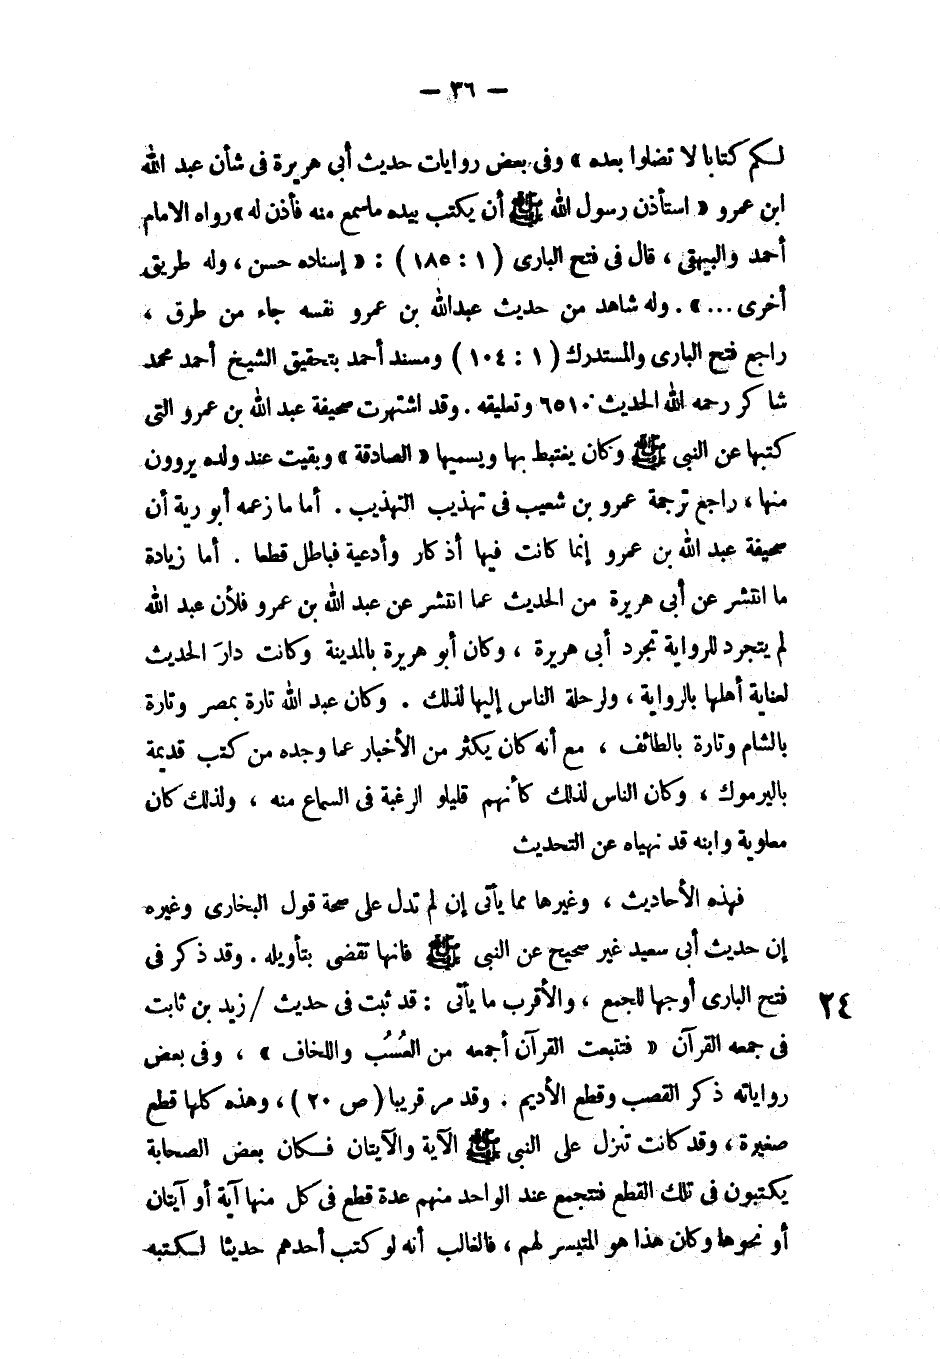 — ٣٦ —
لكم كتابا لا تضلوا بعده » وفى بعض روايات حديث أبى هريرة فى شأن عبد الله
ابن عمرو « استأذن رسول الله ﷺ أن يكتب بيده ماسمع منه فأذن له » رواه الامام
أحمد والبيهقى ، قال فى فتح البارى ( ١ : ١٨٥ ) : « إسناده حسن ، وله طريق
أخرى ... » . وله شاهد من حديث عبدالله بن عمرو نفسه جاء من طرق ،
راجع فتح البارى والمستدرك ( ١ : ١٠٤ ) ومسند أحمد بتحقيق الشيخ أحمد محمد
شاكر رحمه الله الحديث ٦٥١٠ وتعليقه . وقد اشتهرت صحيفة عبد الله بن عمرو التى
كتبها عن النبى ﷺ وكان يغتبط بها ويسميها « الصادقة » وبقيت عند ولده يروون
منها ، راجع ترجمة عمرو بن شعيب فى تهذيب التهذيب . أما ما زعمه أبو رية أن
صحيفة عبد الله بن عمرو إنما كانت فيها أذكار وأدعية فباطل قطعا . أما زيادة
ما انتشر عن أبى هريرة من الحديث عما انتشر عن عبد الله بن عمرو فلأن عبد الله
لم يتجرد للرواية تجرد أبى هريرة ، وكان أبو هريرة بالمدينة وكانت دارَ الحديث
لعناية أهلها بالرواية ، ولرحلة الناس إليها لذلك . وكان عبد الله تارة بمصر وتارة
بالشام وتارة بالطائف ، مع أنه كان يكثر من الأخبار عما وجده من كتب قديمة
باليرموك ، وكان الناس لذلك كأنهم قليلو الرغبة فى السماع منه ، ولذلك كان
معاوية وابنه قد نهياه عن التحديث
فهذه الأحاديث ، وغيرها مما يأتى إن لم تدل على صحة قول البخارى وغيره
إن حديث أبى سعيد غير صحيح عن النبى ﷺ فانها تقضى بتأويله . وقد ذكر فى
فتح البارى أوجها للجمع ، والأقرب ما يأتى : قد ثبت فى حديث / زيد بن ثابت ٢٤
فى جمعه القرآن « فتتبعت القرآن أجمعه من العُسُب واللخاف » ، وفى بعض
رواياته ذكر القصب وقطع الأديم . وقد مر قريبا ( ص ٢٠ ) ، وهذه كلها قطع
صغيرة ، وقد كانت تنزل على النبى ﷺ الآية والآيتان فكان بعض الصحابة
يكتبون فى تلك القطع فتتجمع عند الواحد منهم عدة قطع فى كل منها آية أو آيتان
أو نحوها وكان هذا هو المتيسر لهم ، فالغالب أنه لو كتب أحدهم حديثا لكتبه